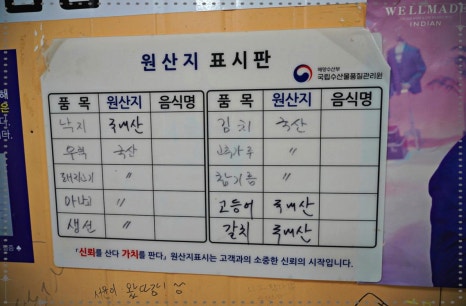 WELLMADE
INDIAN
원산지 표시판
해양수산부
국립수산물품질관리원
품 목 원산지 음식명 품 목 원산지 음식명
낙지 국내산 김치 국산
국산 고춧가루 〃
돼지고기 〃 참기름 〃
아나고 〃 고등어 국내산
생선 〃 갈치 국내산
「신뢰를 산다 가치를 판다」 원산지표시는 고객과의 소중한 신뢰의 시작입니다.